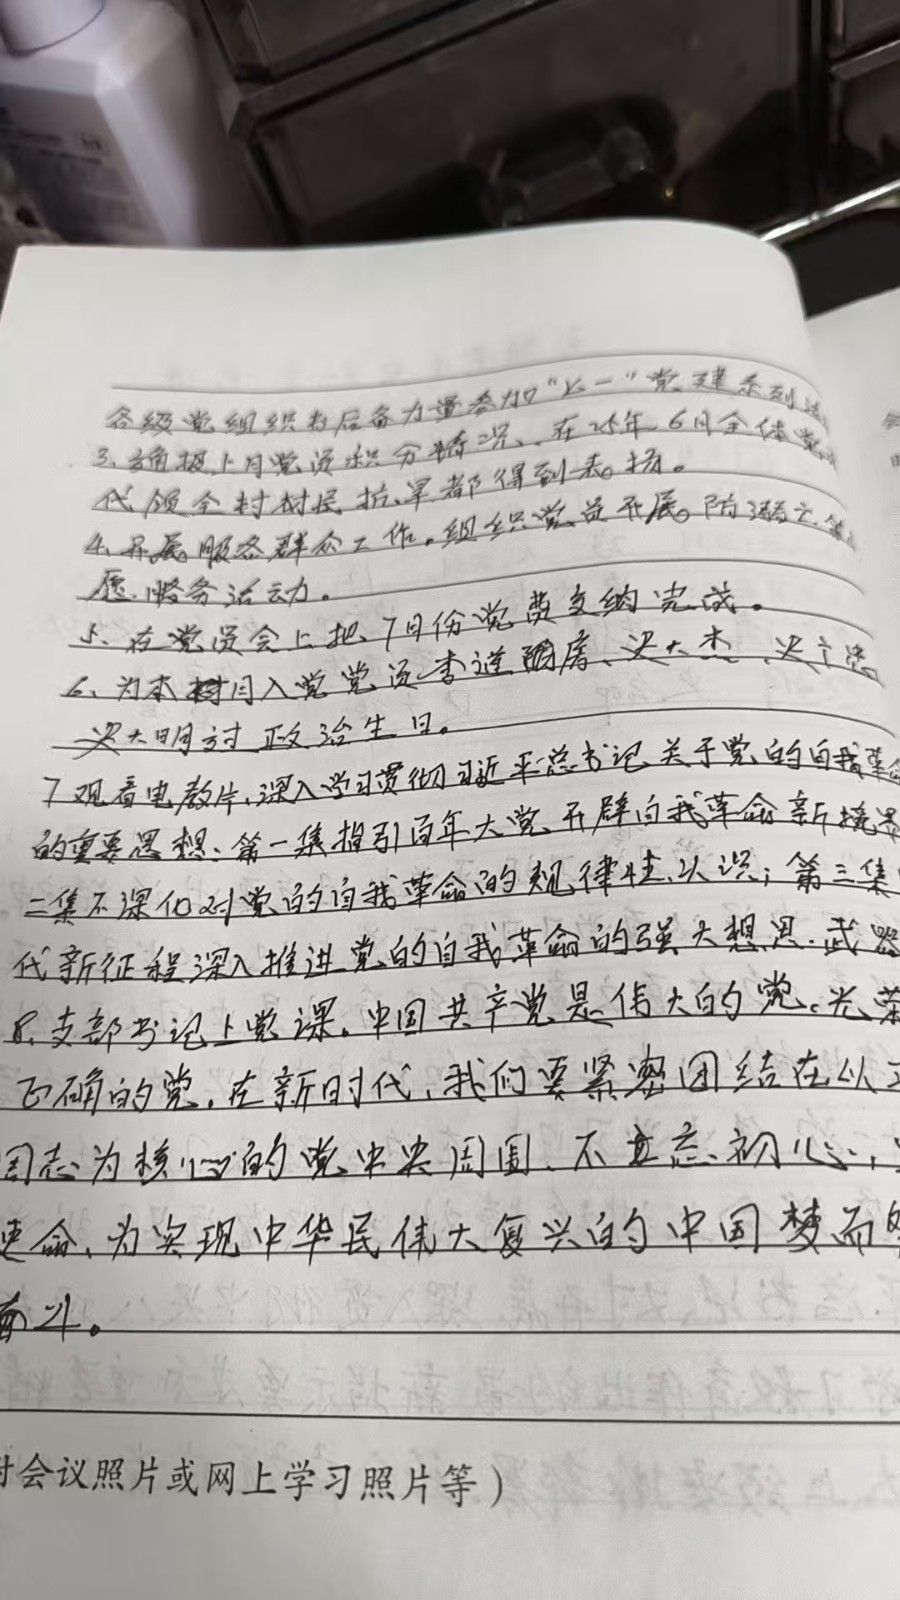 各级党组织书后备力量参加“七一”党建系列活
3、通报上月党员积分情况、在25年6月全体党
代领全村村民抗旱都得到表扬。
4、开展服务群众工作。组织党员开展防溺亡
愿服务活动。
5、在党员会上把7月份党费交纳完成。
6、为本村月入党党员李进
大明讨政治生日。
7观看电教片,深入学习贯彻习近平总书记关于党的自我革命
的重要思想:第一集指引百年大党开辟自我革命新境界
二集不深化对党的自我革命的规律性认识;第三集
代新征程深入推进党的自我革命的强大想思武器
8、支部书记上党课。中国共产党是伟大的党、光荣
正确的党,在新时代,我们要紧密团结在以
同志为核心的党中央周围、不忘初心,
使命、为实现中华民伟大复兴的中国梦而
奋斗。
对会议照片或网上学习照片等)